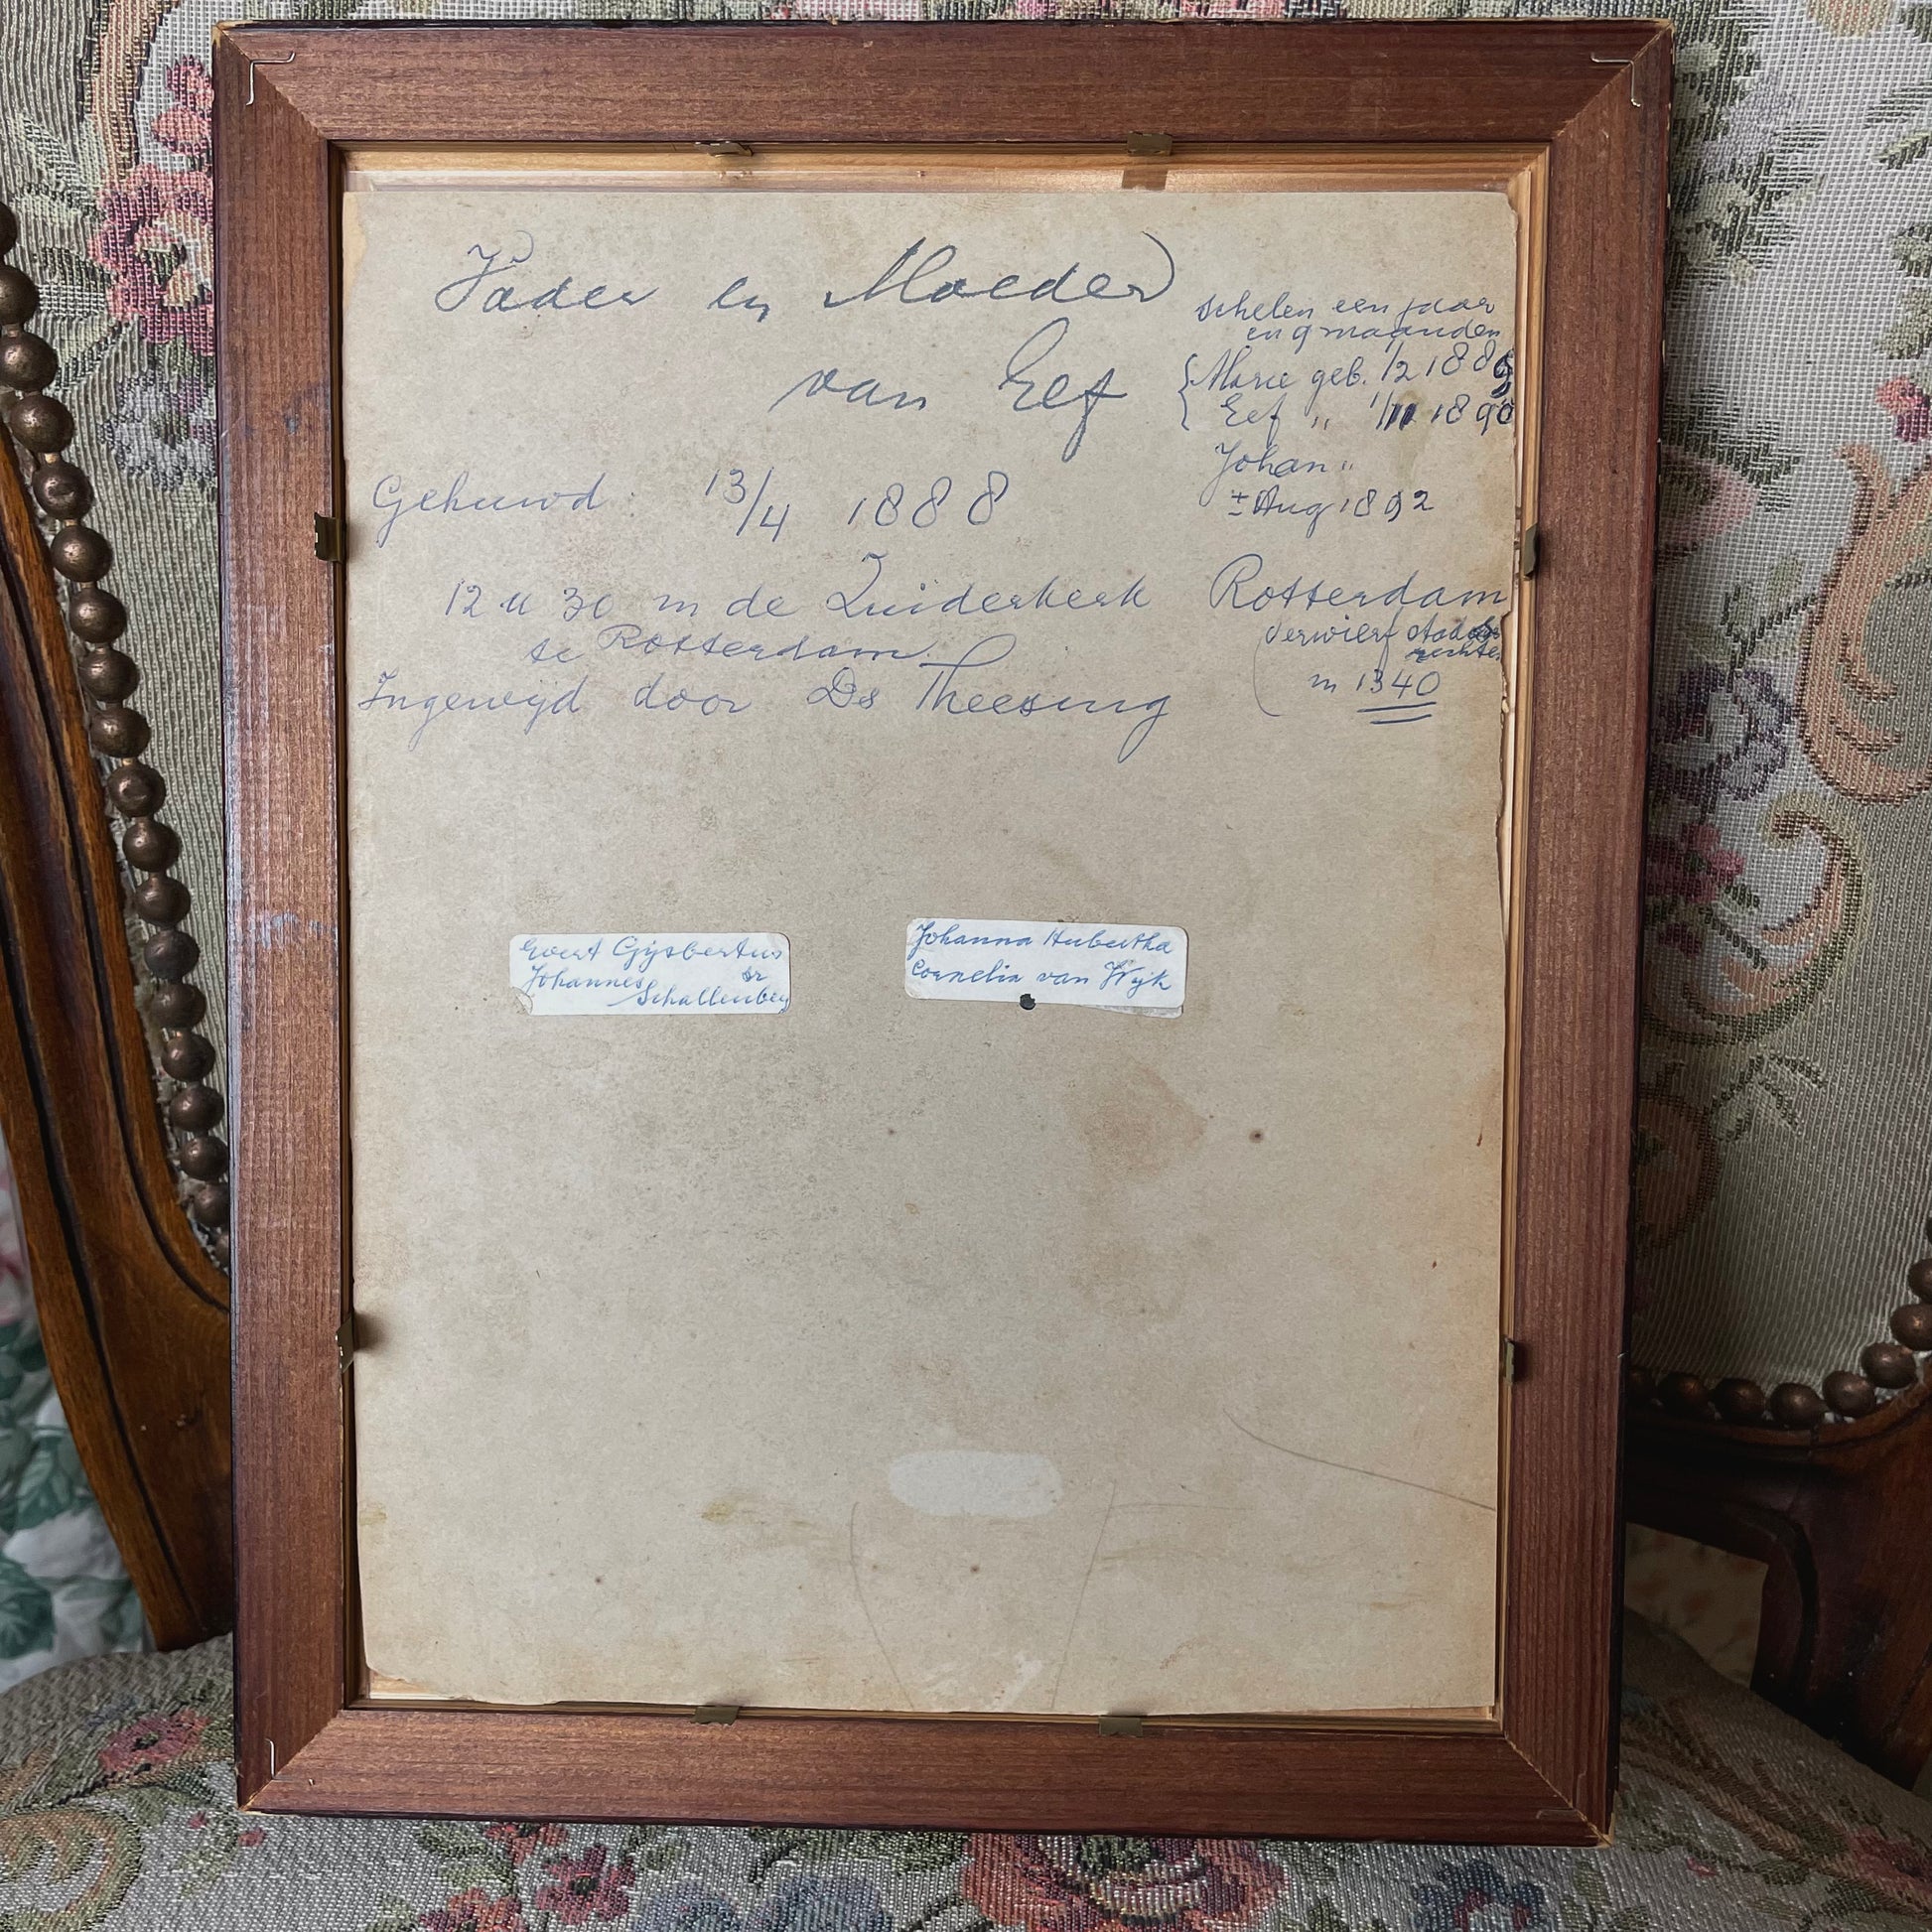 Vader en Moeder
van Eef
schelen een jaar
en 9 maanden
{ Marie geb. 1/2 1889
Eef " 1/11 1890
Johan "
± Aug 1892
Gehuwd 13/4 1888
12 u 30 in de Zuiderkerk
te Rotterdam.
Ingewijd door Ds Theesing
Rotterdam
verwierf stads
rechten
in 1340
Evert Gijsbertus
Johannes sr
Schallenberg
Johanna Hubertha
Cornelia van Wijk